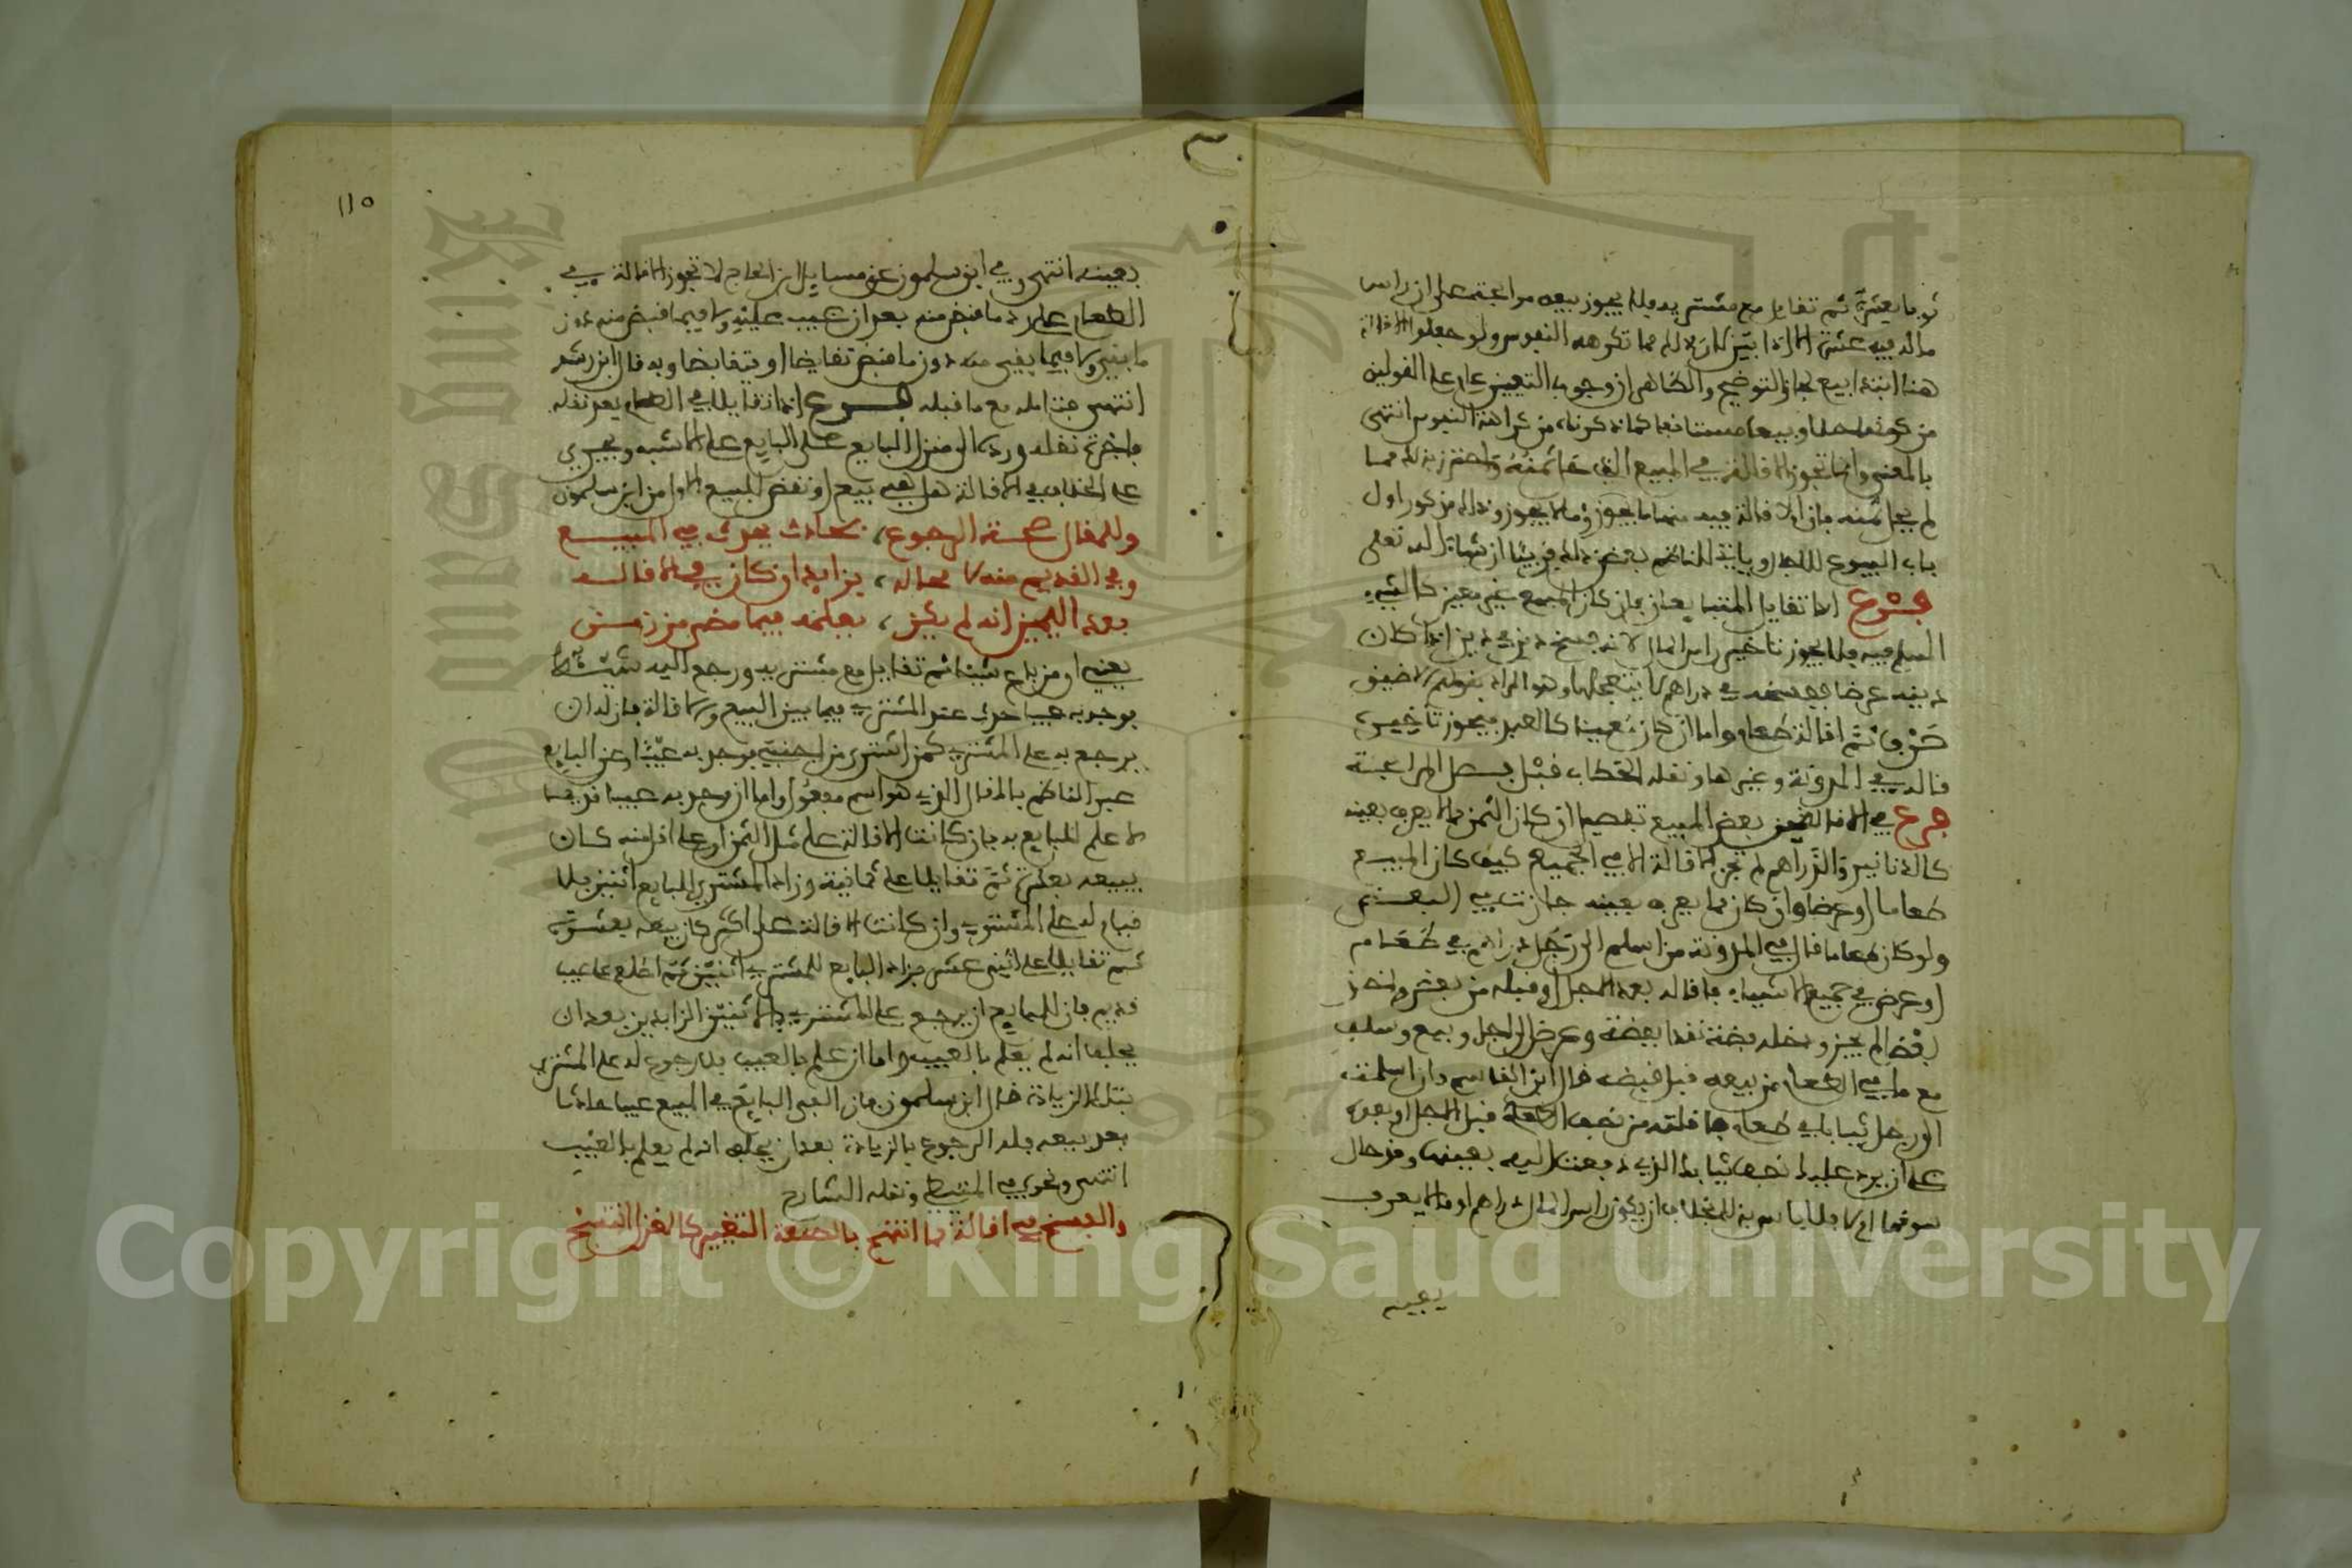 ثوبا بعشرة ثم تقايل مع مشتريه فلا يجوز بيعه مرابحة على ان راس
ماله فيه عشرة الا اذا بين كان ذلك مما تكرهه النفوس ولو جعلوا الاقالة
هنا ابتداء بيع والظاهر ان وجوب التعيين على القولين
من كراهة النفوس انتهى
بالمعنى وانما تجوز الاقالة في المبيع
لم يجز بيعه فان الاقالة فيه منها ما يجوز وما لا يجوز وذلك مذكور اول
باب البيوع للاجل وياتي للناظم بعض ذلك قريبا ان شاء الله تعلى
فرع اذا تقايل المتبايعان فان كان المبيع غير معين كالشيء
المسلم فيه فلا يجوز تاخير راس المال لانه فسخ دين في دين اذا كان
دينه عرضا ففسخه في دراهم لا يتعجلها وهو المراد بقولهم
صرف ثم اقالة طعام واما ان كان معينا كالعبد فيجوز تاخيره
قاله في المدونة وغيرها ونقله الحطاب قبل فصل المرابحة
فرع في الاقالة من بعض المبيع تفصيل ان كان الثمن مما لا يعرف بعينه
كالدنانير والدراهم لم تجز الاقالة الا في الجميع كيف كان المبيع
طعاما او عرضا وان كان مما يعرف بعينه جازت في البعض
ولو كان طعاما قال في المدونة من اسلم الى رجل دراهم في طعام
او عرض في جميع الاشياء فاقاله بعد الاجل او قبله من بعض واخذ
بعضا لم يجز ودخله فضة نقدا بفضة وعرض الى اجل وبيع وسلف
مع ما في الطعام من بيعه قبل قبضه قال ابن القاسم وان اسلمت
الى رجل ثيابا في طعام فاقلته من نصف الطعام قبل الاجل او بعده
على ان يرد عليك نصف ثيابك الذي دفعت اليه بعينها وقد حال
سوقها ام لا فلا باس به للمخلاف ان يكون راس المال دراهم او مما لا يعرف
بعينه
١١٥
بعينه انتهى وفي ابن سلمون عن مسايل ابن الحاج لا تجوز الاقالة في
الطعام على رد ما قبض منه بعد ان غيب عليه ولا فيما قبض منه دون
ما بقي ولا فيما بقي منه دون ما قبض تقابضا او يتقابضا وبه قال ابن رشد
انتهى فتامله مع ما قبله فرع اذا تقايلا في الطعام بعد نقله
فاجرة نقله ورده الى منزل البايع على البايع على الاشبه ويجري
على الخلاف في الاقالة هل هي بيع او نقض للبيع الاول من ابن سلمون
وللمقال صحة الرجوع، بحادث يحدث في المبيع
وفي القديم منه لا محاله، بزايد ان كان في الاقاله
بعد اليمين انه لم يكن، يعلمه فيما مضى من زمن
يعني ان من باع شيئا ثم تقايل مع مشتريه ورجع اليه شيئه
فوجد به عيبا حدث عند المشتري فيما بين البيع والاقالة فان له ان
يرجع به على المشتري كمن اشترى من اجنبي فوجد به عيبا وعن البايع
عبر الناظم بالمقال الذي هو اسم مفعول واما ان وجد به عيبا قديما
لا علم للبايع به فان كانت الاقالة على مثل الثمن او على اقل منه كان
يبيعه بعشرة ثم تقايلا على ثمانية وزاد المشتري للبايع اثنين فلا
قيام له على المشتري وان كانت الاقالة على اكثر كان يبيعه بعشرة
ثم تقايلا على اثني عشر فزاد البايع للمشتري اثنين ثم اطلع على عيب
قديم فان للبايع ان يرجع على المشتري بالاثنين الزايدين بعد ان
يحلف انه لم يعلم بالعيب واما ان علم بالعيب فلا رجوع له على المشتري
بتلك الزيادة قال ابن سلمون فان الفى البايع في المبيع عيبا حادثا
بعد بيعه فله الرجوع بالزيادة بعد ان يحلف انه لم يعلم بالعيب
انتهى ونحوه في المتيطي ونقله الشارح
والفسخ في اقالة مما انتهج بالصنعة التغيير كالغزل انتسج
Copyright © King Saud University
King Saud
1957